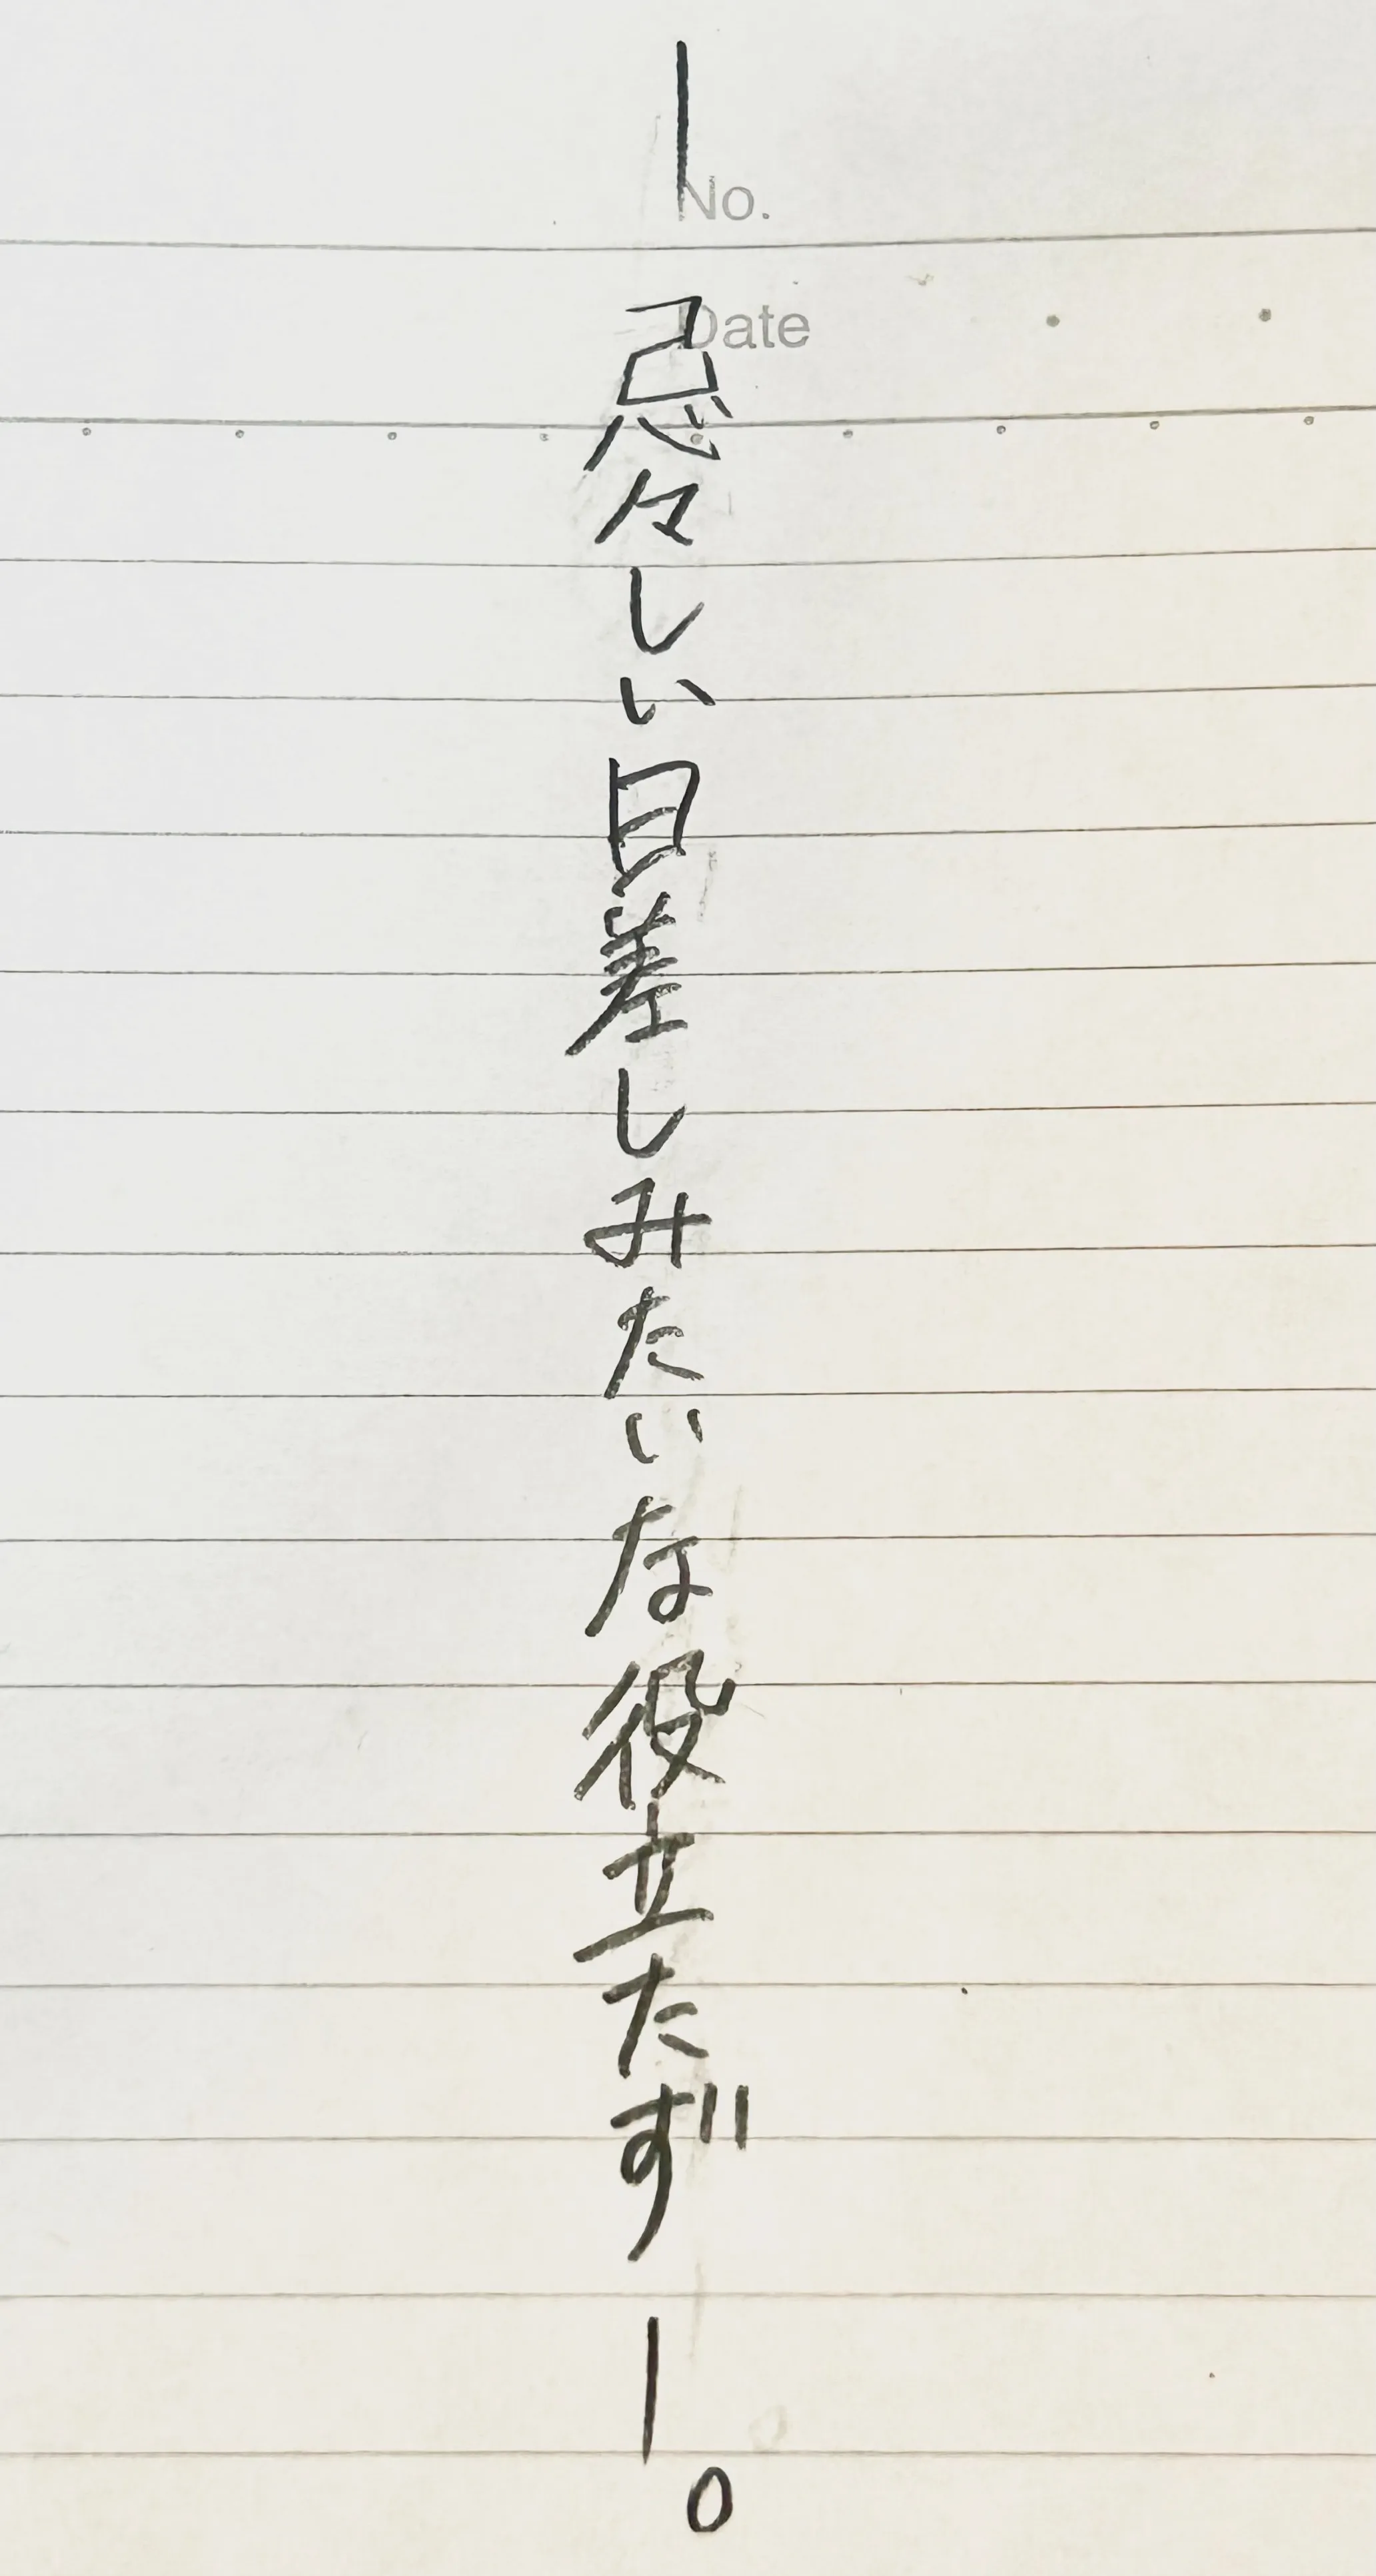 No.
Date
―忌々しい日差しみたいな役立たず―。